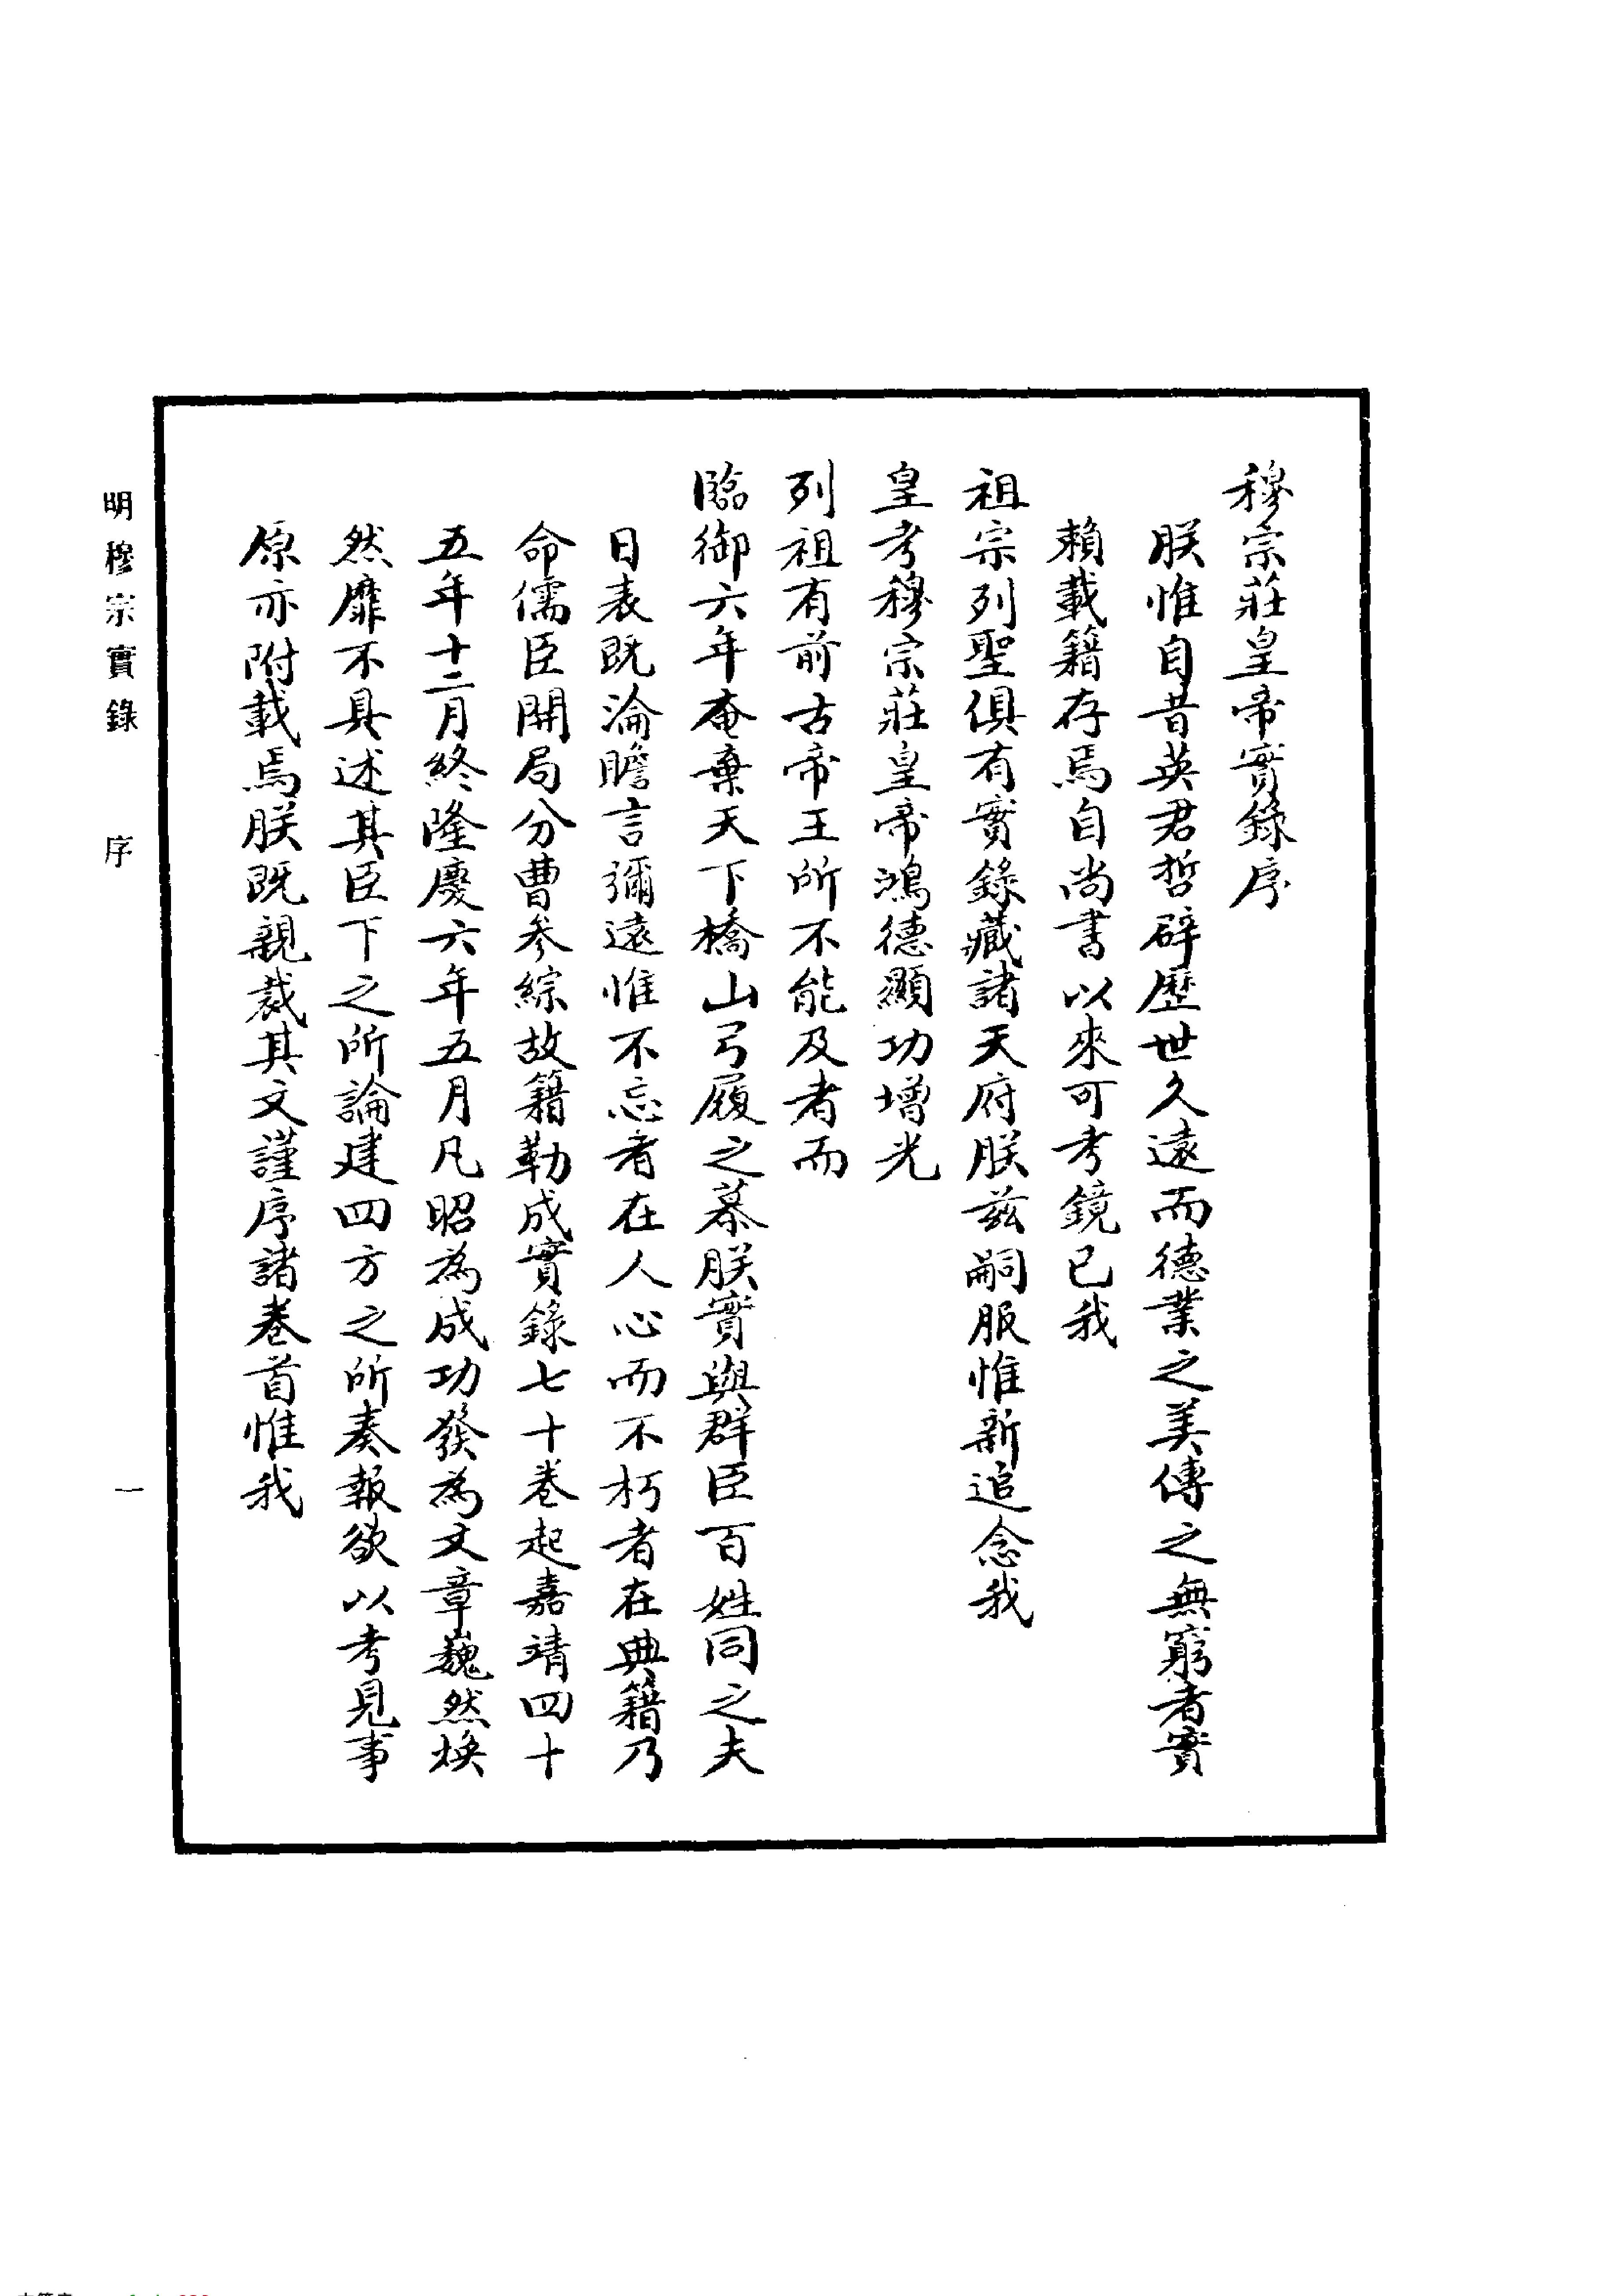 穆宗莊皇帝實錄序
朕惟自昔英君哲辟歷世久遠而德業之美傳之無窮者實
賴載籍存焉自尚書以來可考鏡已我
祖宗列聖俱有實錄藏諸天府朕茲嗣服惟新追念我
皇考穆宗莊皇帝鴻德顯功增光
列祖有前古帝王所不能及者而
臨御六年奄棄天下橋山弓履之慕朕實與群臣百姓同之夫
日表既淪瞻言彌遠惟不忘者在人心而不朽者在典籍乃
命儒臣開局分曹參綜故籍勒成實錄七十卷起嘉靖四十
五年十二月終隆慶六年五月凡昭為成功發為文章巍然煥
然靡不具述其臣下之所論建四方之所奏報欲以考見事
原亦附載焉朕既親裁其文謹序諸卷首惟我
明穆宗實錄 序 一